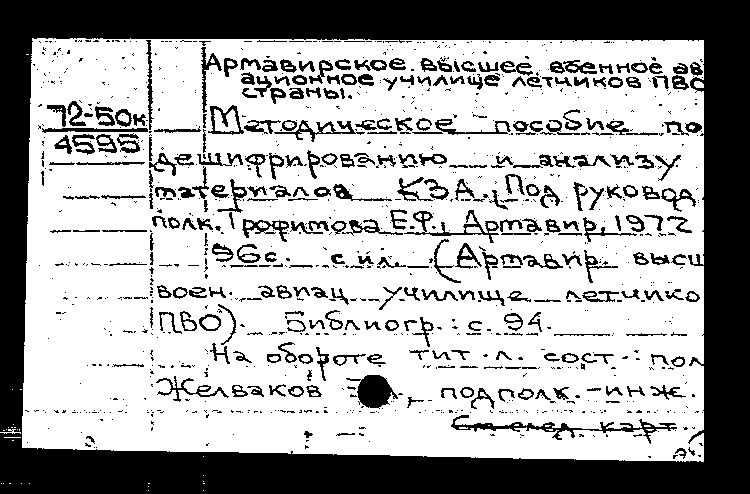 Армавирское высшее военное ав
ационное училище летчиков ПВО
страны.
72-50к
4595
Методическое пособие по
дешифрированию и анализу
материалов КЗА. Под руковод.
полк. Трофимова Е.Ф., Армавир, 1972
96с. с ил. (Армавир. высш
воен. авиац училище летчико
ПВО). Библиогр.: с. 94.
На обороте тит. л. сост.: пол
Желваков , подполк.-инж.
См след. карт.